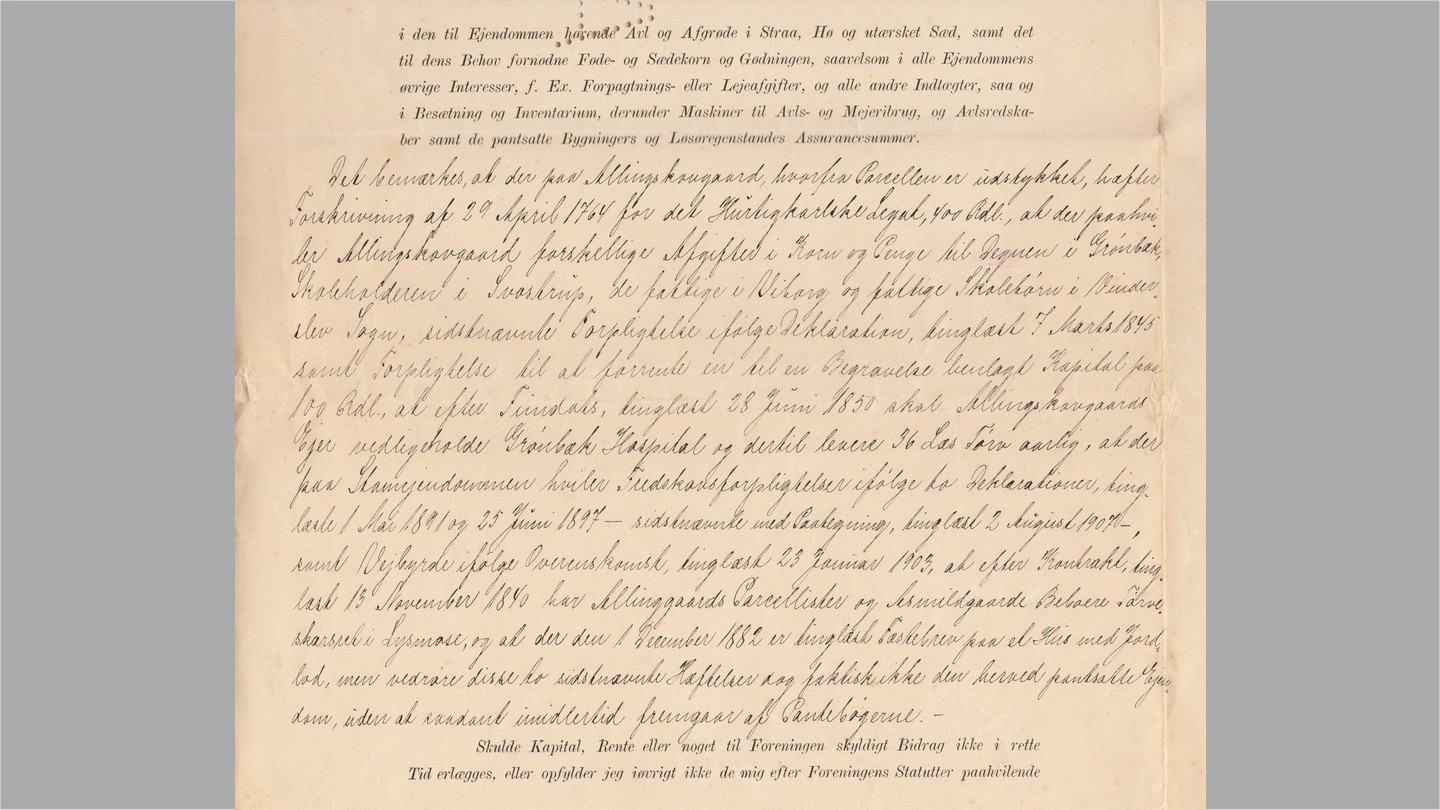 i den til Ejendommen hørende Avl og Afgrøde i Straa, Hø og utærsket Sæd, samt det
til dens Behov fornødne Føde- og Sædekorn og Gødningen, saavelsom i alle Ejendommens
øvrige Interesser, f. Ex. Forpagtnings- eller Lejeafgifter, og alle andre Indtægter, saa og
i Besætning og Inventarium, derunder Maskiner til Avls- og Mejeribrug, og Avlsredska-
ber samt de pantsatte Bygningers og Løsøregenstandes Assurancesummer.
Det bemærkes, at der paa Allingskovgaard, hvorfra Parcellen er udstykket, hæfter
Forskrivning af 29 April 1764 for det Hurtigkarlske Legat, 400 Rdl., at der paahvi-
ler Allingskovgaard forskellige Afgifter i Korn og Penge til Degnen i Grønbæk,
Skoleholderen i Svostrup, de fattige i Viborg og fattige Skolebørn i Vinder-
slev Sogn, sidstnævnte Forpligtelse ifølge Deklaration, tinglæst 7 Marts 1845
samt Forpligtelse til at forrente en til en Begravelse henlagt Kapital paa
100 Rdl., at efter Fundats, tinglæst 28 Juni 1850 skal Allingskovgaards
Ejer vedligeholde Grønbæk Hospital og dertil levere 36 Læs Tørv aarlig, at der
paa Stamejendommen hviler Fredskovsforpligtelser ifølge to Deklarationer, ting-
læste 1 Mai 1891 og 25 Juni 1897 — sidstnævnte med Paategning, tinglæst 2 August 1907 —,
samt Vejbyrde ifølge Overenskomst, tinglæst 23 Januar 1903, at efter Kontrakt, ting-
læst 13 November 1840 har Allinggaards Parcellister og Asmildgaarde Beboere Tørve-
skærsret i Lysmose, og at der den 1 December 1882 er tinglæst Fæstebrev paa et Hus med Jord-
lod, men vedrøre disse to sidstnævnte Hæftelser dog faktisk ikke den herved pantsatte Ejen-
dom, uden at saadant imidlertid fremgaar af Pantebøgerne. —
Skulde Kapital, Rente eller noget til Foreningen skyldigt Bidrag ikke i rette
Tid erlægges, eller opfylder jeg iøvrigt ikke de mig efter Foreningens Statutter paahvilende